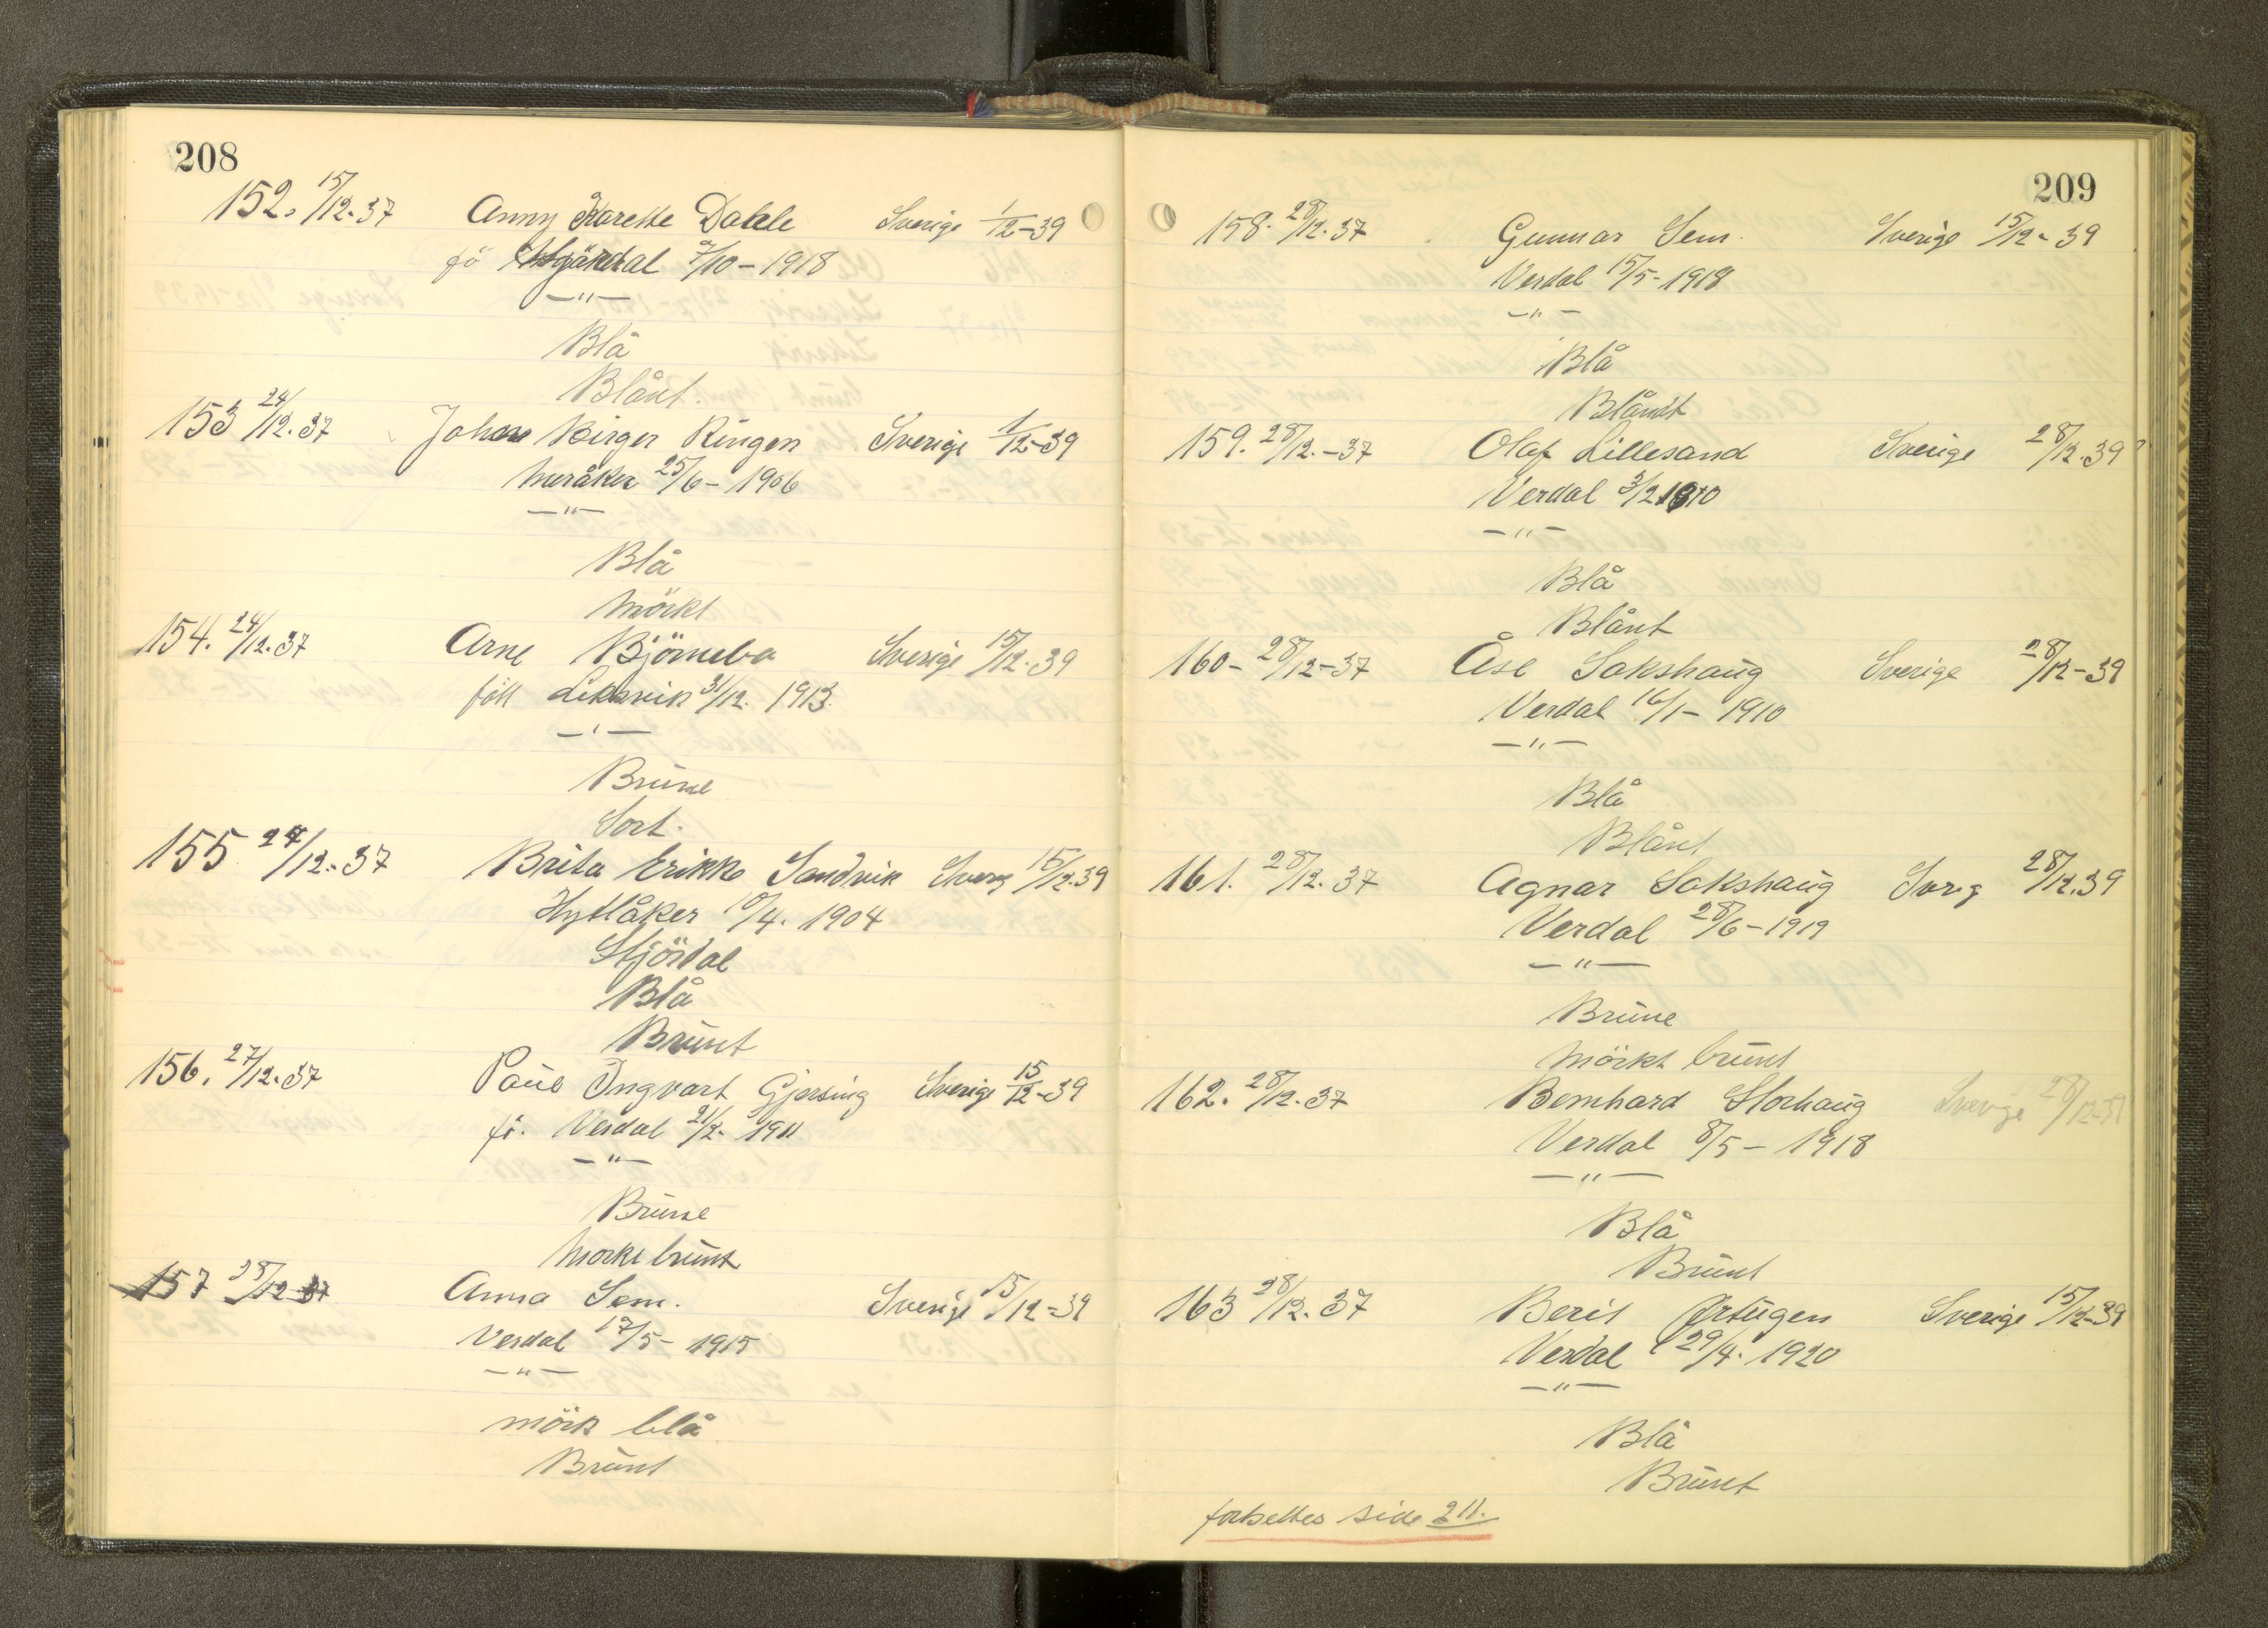 208
152. 15/12.37 Anny Karette Dalele Sverige 1/12-39
fö Stjördal 7/10-1918
-"-
Blå
Blånt.
153 24/12.37 Johan Birger Ringen Sverige 1/12-39
Meråker 25/6-1906
-"-
Blå
Mörkt
154. 24/12.37 Arne Björnebo Sverige 15/12.39
föt Leksvik 31/12. 1913.
-"-
Brune
Sort.
155 27/12.-37 Brita Erikke Sandvik Sverg 15/12.39
Hyllåker 10/4. 1904
Stjördal
Blå
Brunt
156. 27/12.37 Paul Ingvart Gjersing Sverige 15/12-39
fö. Verdal 21/2- 1911
-"-
Brune
Morke brunt
157 28/12-37 Anna Sem. Sverige 15/12-39
Verdal 17/5- 1915
-"-
mörk blå
Brunt
209
158. 28/12.37 Gunnar Sem. Sverige 15/12-39
Verdal 15/5-1918
-"-
Blå
Blåndt
159. 28/12.-37 Olaf Lillesand Sverige 28/12.39
Verdal 3/2 1910
-"-
Blå
Blånt
160- 28/12-37 Åse Sakshaug Sverige 28/12-39
Verdal 16/1- 1910
-"-
Blå
Blånt
161. 28/12.37 Agnar Sakshaug Sverg 28/12.39
Verdal 28/6-1919
-"-
Brune
Mörkt brunt
162. 28/12.37 Bernhard Storhaug Sverige 28/12-39
Verdal 8/5- 1918
-"-
Blå
Brunt
163 28/12.37 Berit Ørtugen Sverige 15/12-39
Verdal 29/4. 1920
-"-
Blå
Brunt
fortsettes side 211.